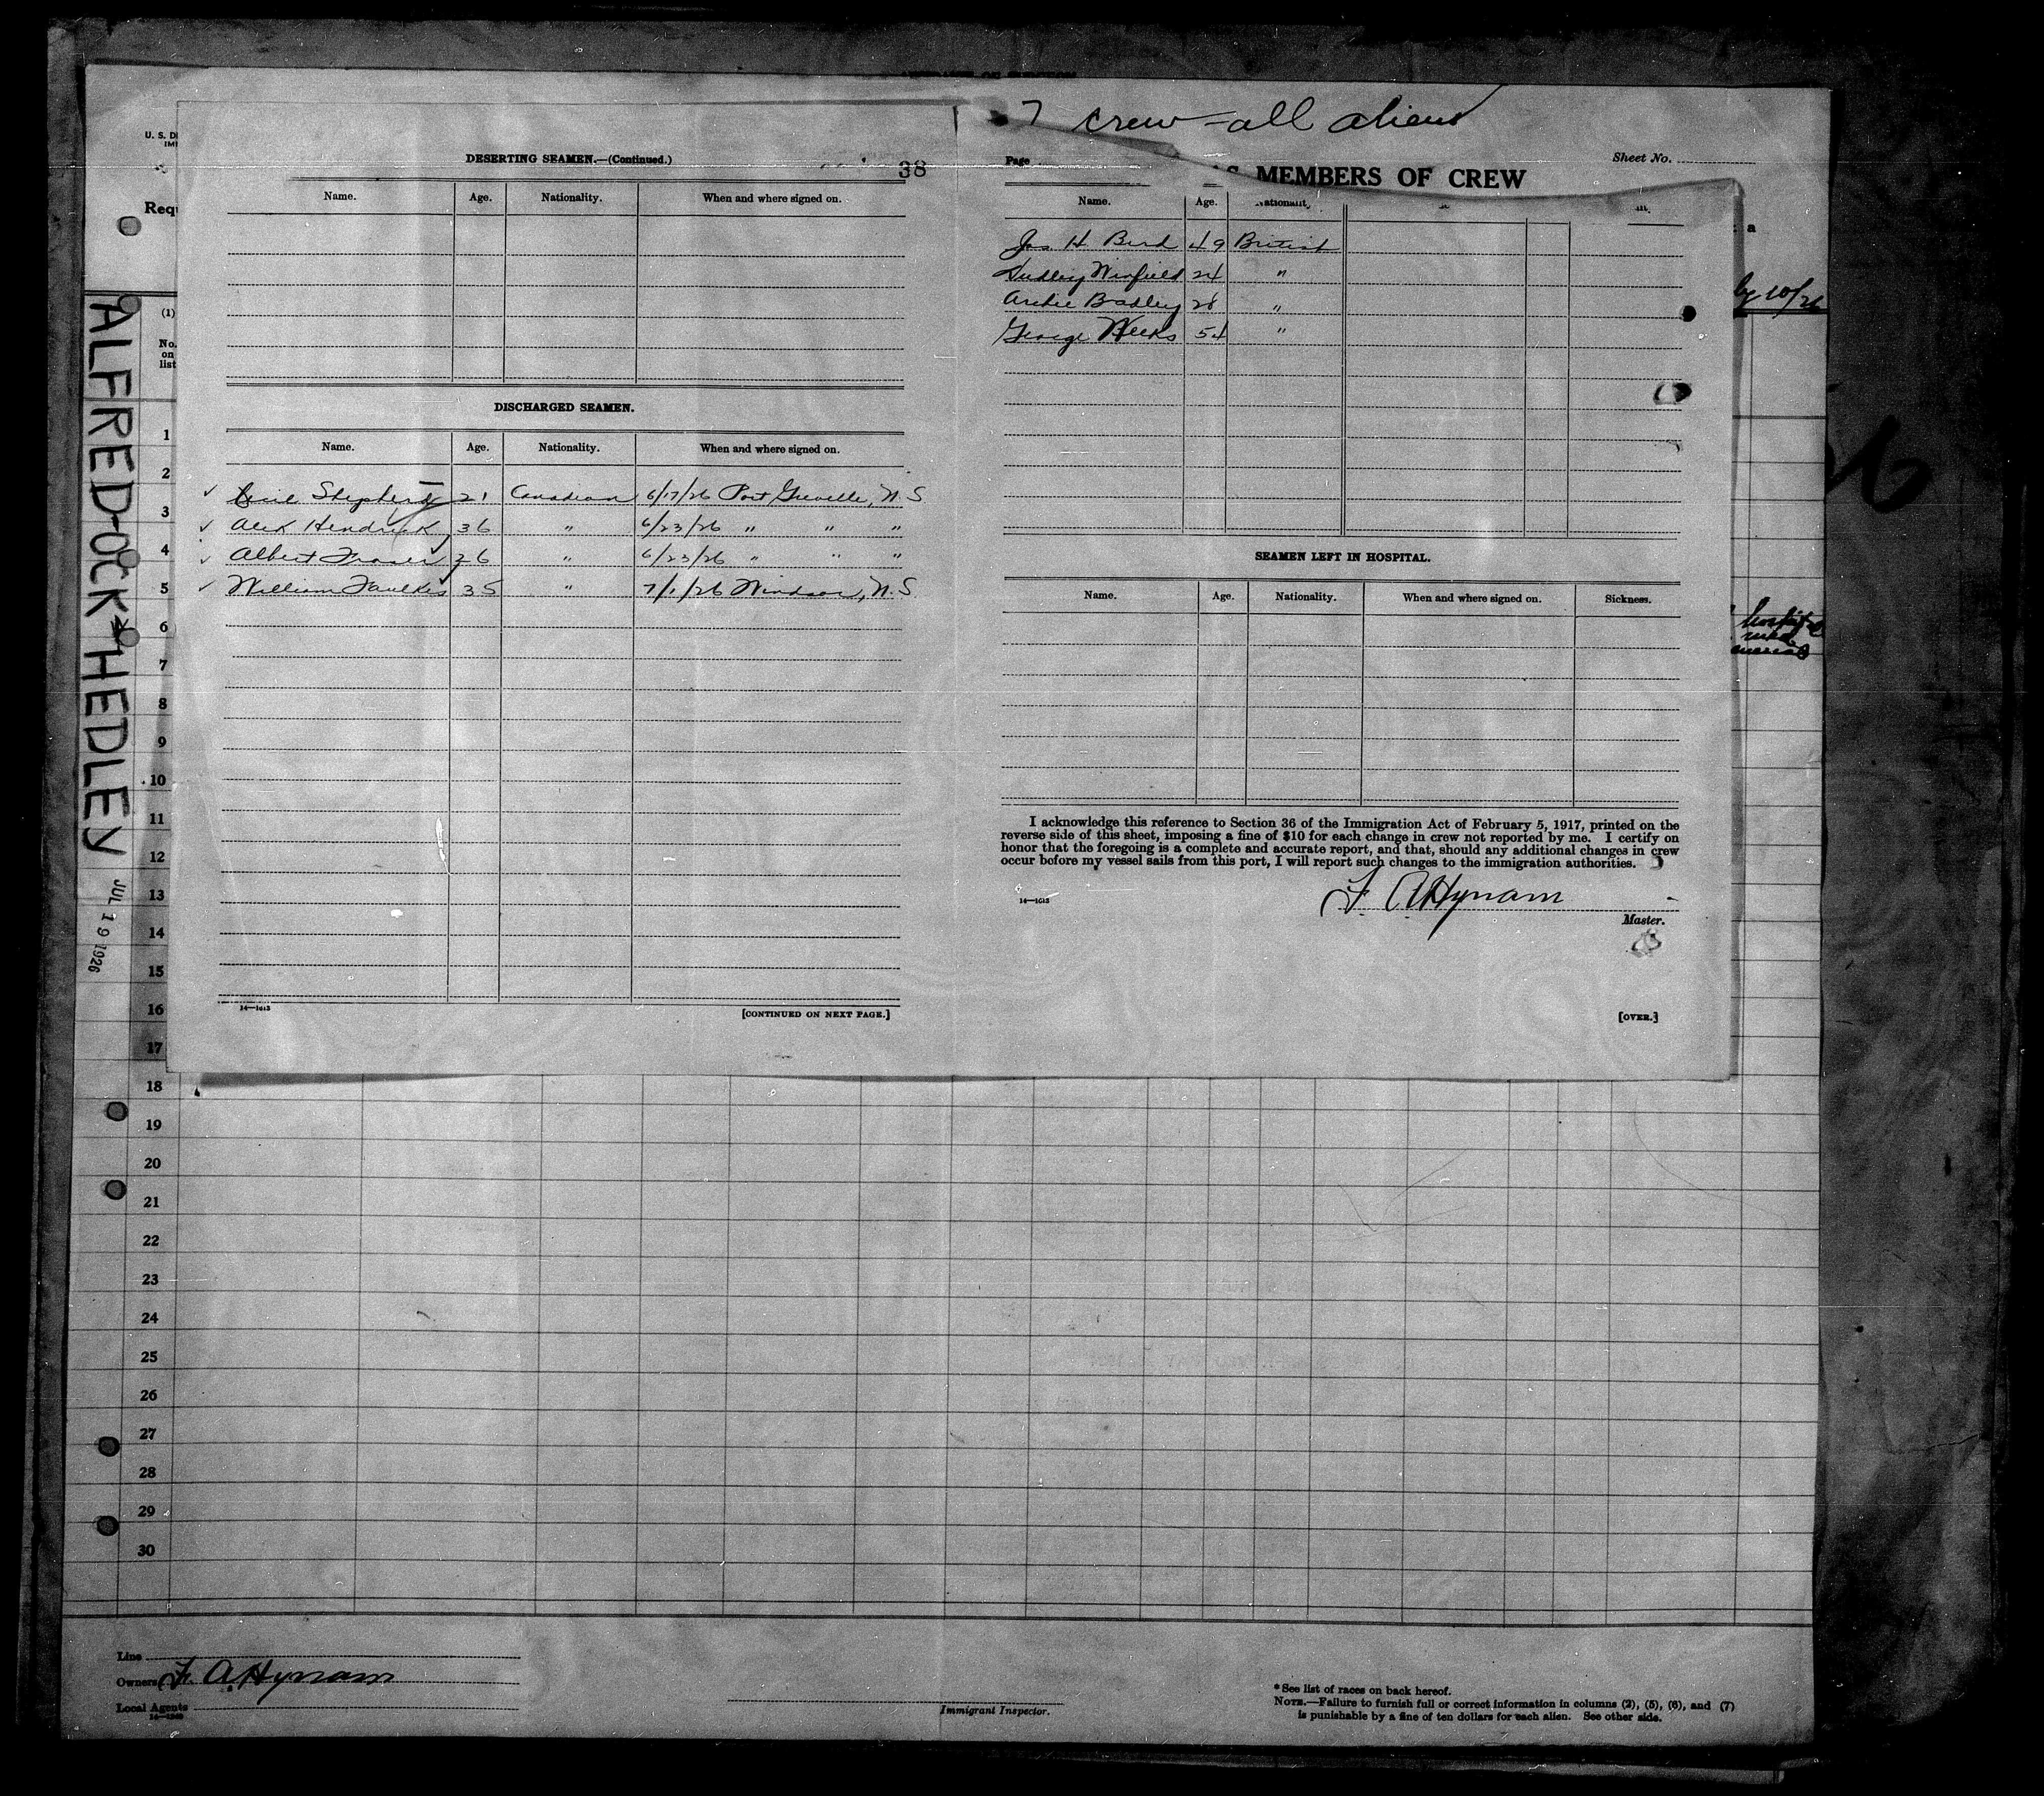 7 crew - all aliens
U. S. D
IM
Requ
(1)
No.
on
list
ALFRED OCK HEDLEY
JUL 19 1926
1
2
3
4
5
6
7
8
9
10
11
12
13
14
15
16
17
18
19
20
21
22
23
24
25
26
27
28
29
30
DESERTING SEAMEN.—(Continued.)
38
Name. Age. Nationality. When and where signed on.
DISCHARGED SEAMEN.
Name. Age. Nationality. When and where signed on.
Shepherd 21 Canadian 6/17/26 Port Greville, N. S
Alex Hendrick 36 " 6/23/26 " " "
Albert Fraser 26 " 6/23/26 " " "
William Faulkes 35 " 7/1/26 Windsor, N. S.
14—1613
[CONTINUED ON NEXT PAGE.]
Page
Sheet No.
MEMBERS OF CREW
Name. Age. Nationality
Jas H. Bird 49 British
Dudley Winfield 24 "
Archie Badley 28 "
George Weeks 54 "
SEAMEN LEFT IN HOSPITAL.
Name. Age. Nationality. When and where signed on. Sickness.
I acknowledge this reference to Section 36 of the Immigration Act of February 5, 1917, printed on the
reverse side of this sheet, imposing a fine of $10 for each change in crew not reported by me. I certify on
honor that the foregoing is a complete and accurate report, and that, should any additional changes in crew
occur before my vessel sails from this port, I will report such changes to the immigration authorities.
14—1613
F. A Hynam
Master.
[OVER.]
a
by 10/26
Line
Owners F. A. Hynam
Local Agents
Immigrant Inspector.
* See list of races on back hereof.
NOTE.—Failure to furnish full or correct information in columns (2), (5), (6), and (7)
is punishable by a fine of ten dollars for each alien. See other side.